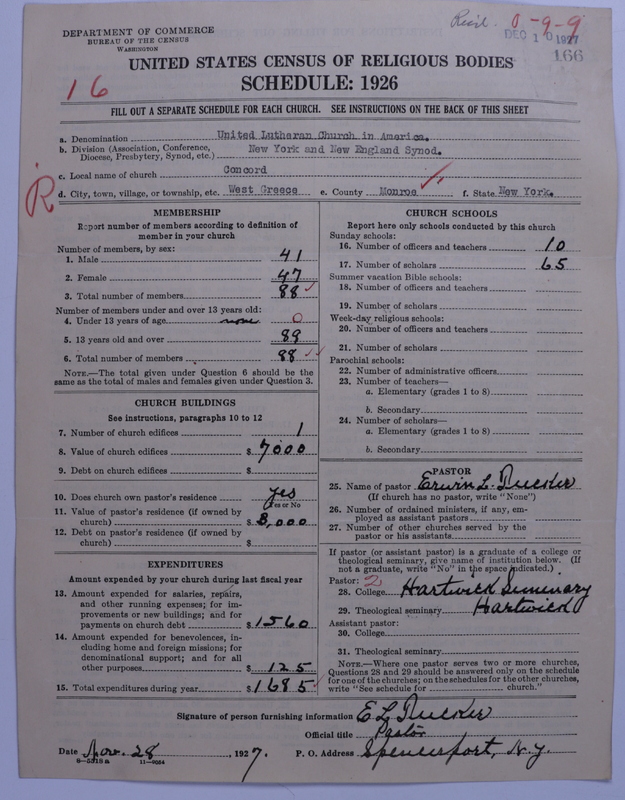 Rec'd. 0-9-9
DEPARTMENT OF COMMERCE
BUREAU OF THE CENSUS
WASHINGTON
DEC 10 1927
166
UNITED STATES CENSUS OF RELIGIOUS BODIES
SCHEDULE: 1926
16
FILL OUT A SEPARATE SCHEDULE FOR EACH CHURCH. SEE INSTRUCTIONS ON THE BACK OF THIS SHEET
a. Denomination United Lutheran Church in America.
b. Division (Association, Conference, Diocese, Presbytery, Synod, etc.) New York and New England Synod.
c. Local name of church Concord
R
d. City, town, village, or township, etc. West Greece e. County Monroe f. State New York.
MEMBERSHIP
Report number of members according to definition of
member in your church
Number of members, by sex:
1. Male 41
2. Female 47
3. Total number of members 88
Number of members under and over 13 years old:
4. Under 13 years of age none 0
5. 13 years old and over 88
6. Total number of members 88
NOTE.—The total given under Question 6 should be
same as the total of males and females given under Question 3.
CHURCH BUILDINGS
See instructions, paragraphs 10 to 12
7. Number of church edifices 1
8. Value of church edifices $ 7000
9. Debt on church edifices $
10. Does church own pastor's residence yes
Yes or No
11. Value of pastor's residence (if owned by
church) $ 8,000
12. Debt on pastor's residence (if owned by
church) $
EXPENDITURES
Amount expended by your church during last fiscal year
13. Amount expended for salaries, repairs,
and other running expenses; for im-
provements or new buildings; and for
payments on church debt $ 1560
14. Amount expended for benevolences, in-
cluding home and foreign missions; for
denominational support; and for all
other purposes $ 125
15. Total expenditures during year $ 1685
CHURCH SCHOOLS
Report here only schools conducted by this church
Sunday schools:
16. Number of officers and teachers 10
17. Number of scholars 65
Summer vacation Bible schools:
18. Number of officers and teachers
19. Number of scholars
Week-day religious schools:
20. Number of officers and teachers
21. Number of scholars
Parochial schools:
22. Number of administrative officers
23. Number of teachers—
a. Elementary (grades 1 to 8)
b. Secondary
24. Number of scholars—
a. Elementary (grades 1 to 8)
b. Secondary
PASTOR
25. Name of pastor Erwin L. Rucker
(If church has no pastor, write "None")
26. Number of ordained ministers, if any, em-
ployed as assistant pastors
27. Number of other churches served by the
pastor or his assistants
If pastor (or assistant pastor) is a graduate of a college or
theological seminary, give name of institution below. (If
not a graduate, write "No" in the space indicated.)
Pastor: 2
28. College Hartwick Seminary
29. Theological seminary Hartwick
Assistant pastor:
30. College
31. Theological seminary
NOTE.—Where one pastor serves two or more churches,
Questions 28 and 29 should be answered only on the schedule
for one of the churches; on the schedules for the other churches,
write "See schedule for church."
Signature of person furnishing information E L Rucker
Official title Pastor
Date Nov. 28, 1927. P. O. Address Spencerport, N.Y.
8—5318a 11—9054